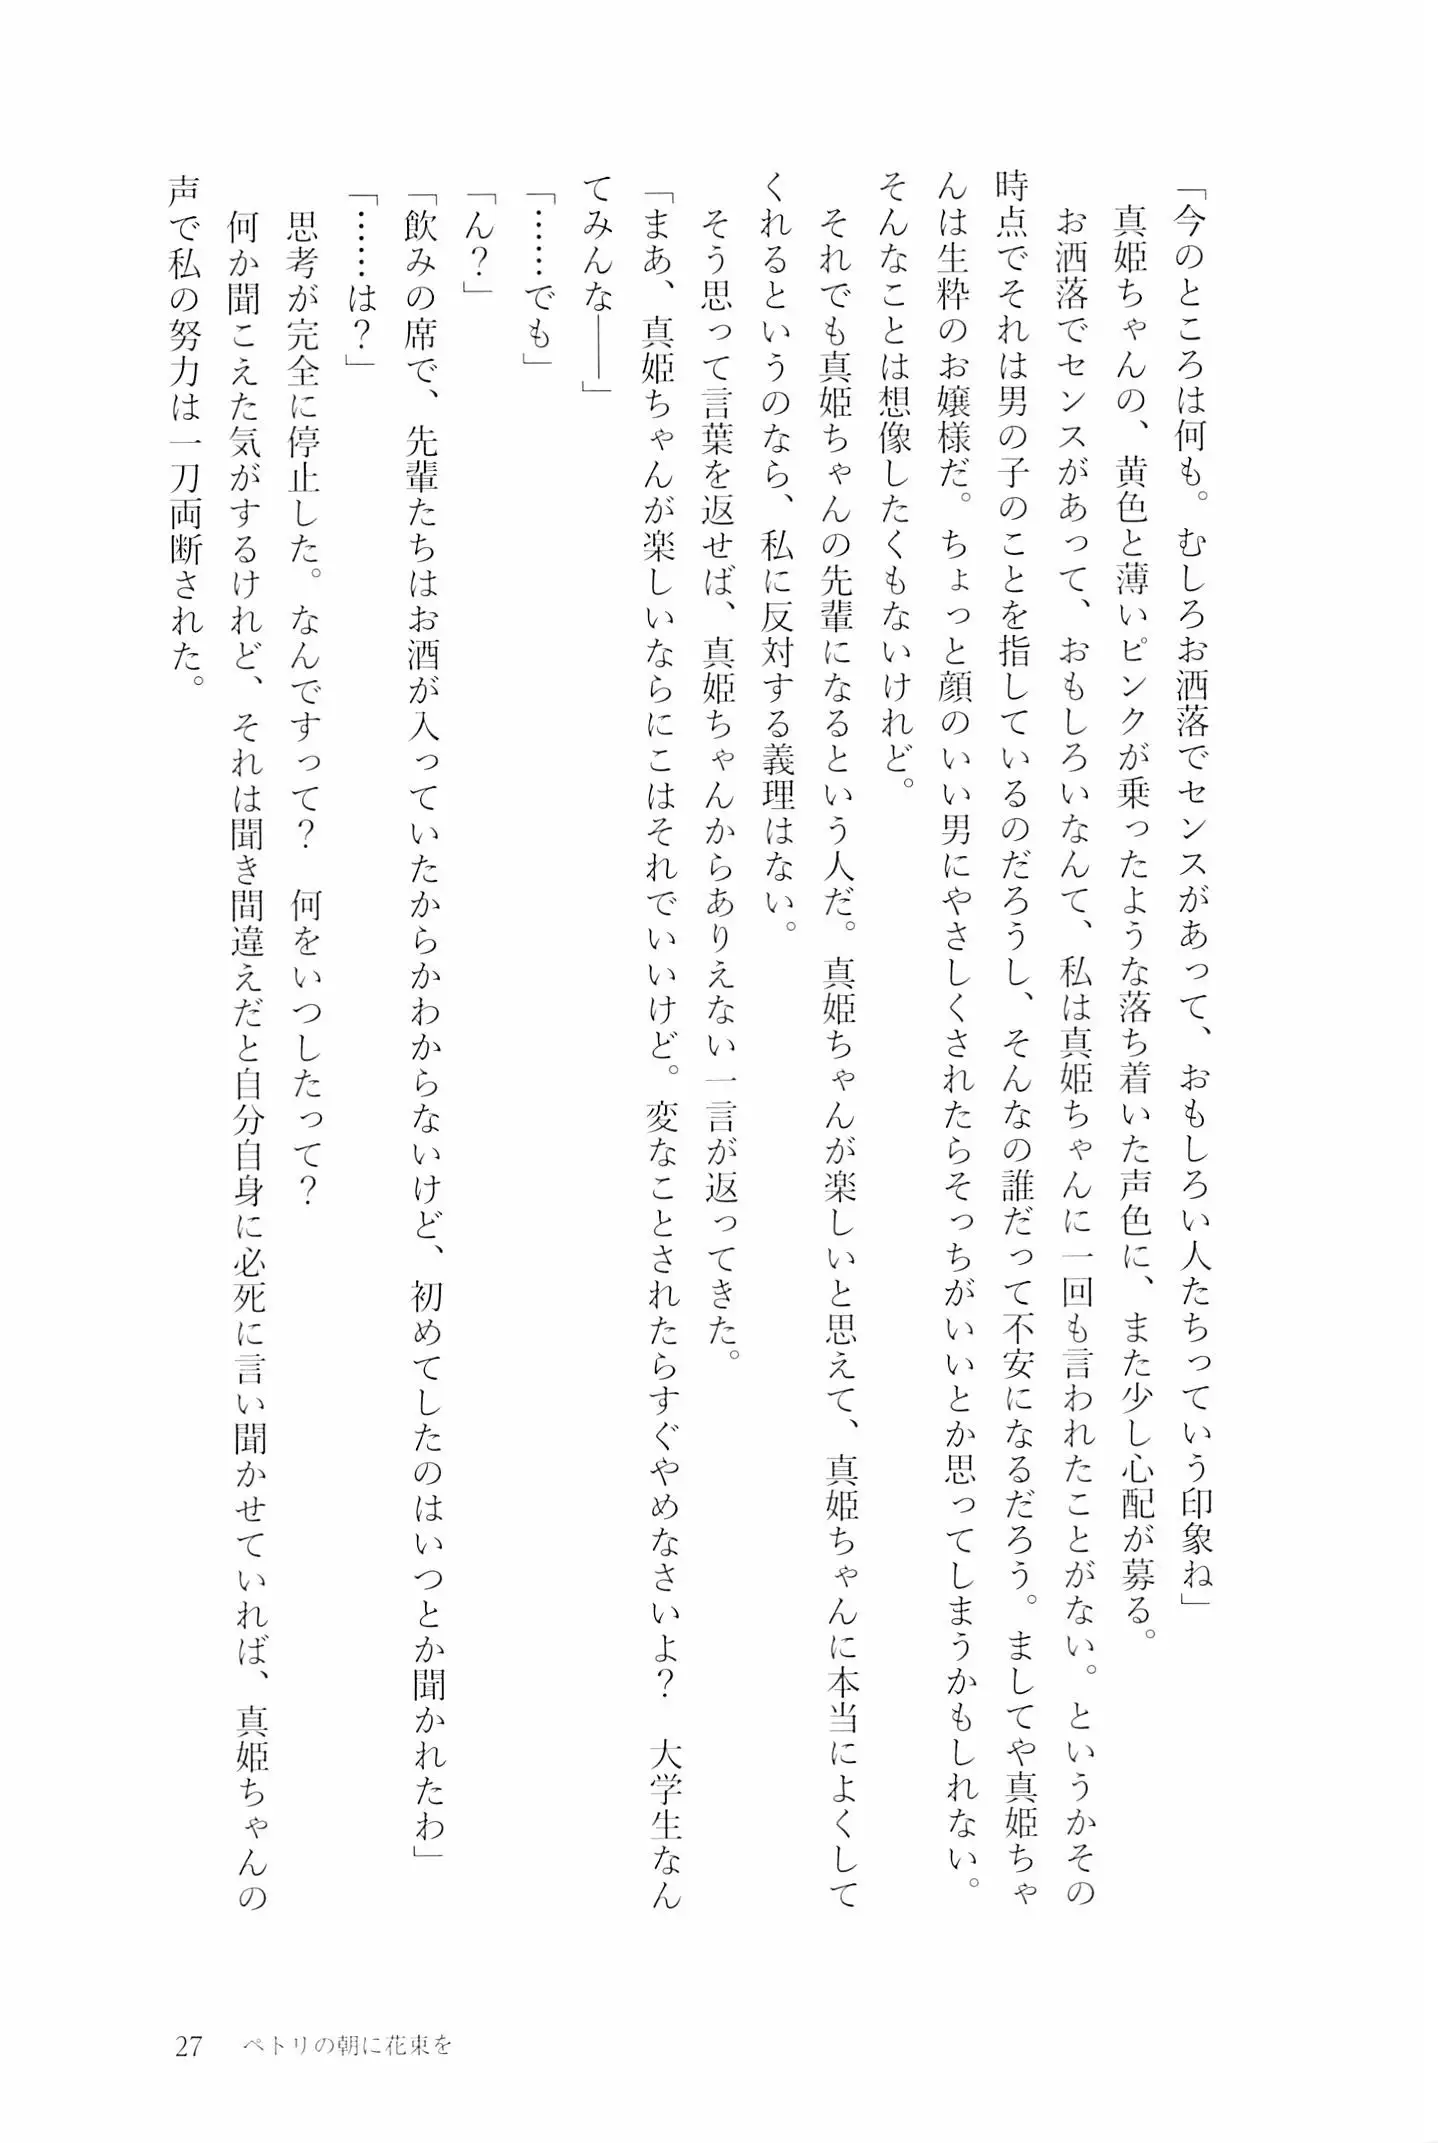 「今のところは何も。むしろお洒落でセンスがあって、おもしろい人たちっていう印象ね」
真姫ちゃんの、黄色と薄いピンクが乗ったような落ち着いた声色に、また少し心配が募る。
お洒落でセンスがあって、おもしろいなんて、私は真姫ちゃんに一回も言われたことがない。というかその
時点でそれは男の子のことを指しているのだろうし、そんなの誰だって不安になるだろう。ましてや真姫ちゃ
んは生粋のお嬢様だ。ちょっと顔のいい男にやさしくされたらそっちがいいとか思ってしまうかもしれない。
そんなことは想像したくもないけれど。
それでも真姫ちゃんの先輩になるという人だ。真姫ちゃんが楽しいと思えて、真姫ちゃんに本当によくして
くれるというのなら、私に反対する義理はない。
そう思って言葉を返せば、真姫ちゃんからありえない一言が返ってきた。
「まあ、真姫ちゃんが楽しいならにこはそれでいいけど。変なことされたらすぐやめなさいよ？　大学生なん
てみんな――」
「……でも」
「ん？」
「飲みの席で、先輩たちはお酒が入っていたからかわからないけど、初めてしたのはいつとか聞かれたわ」
「……は？」
思考が完全に停止した。なんですって？　何をいつしたって？
何か聞こえた気がするけれど、それは聞き間違えだと自分自身に必死に言い聞かせていれば、真姫ちゃんの
声で私の努力は一刀両断された。
27　ペトリの朝に花束を